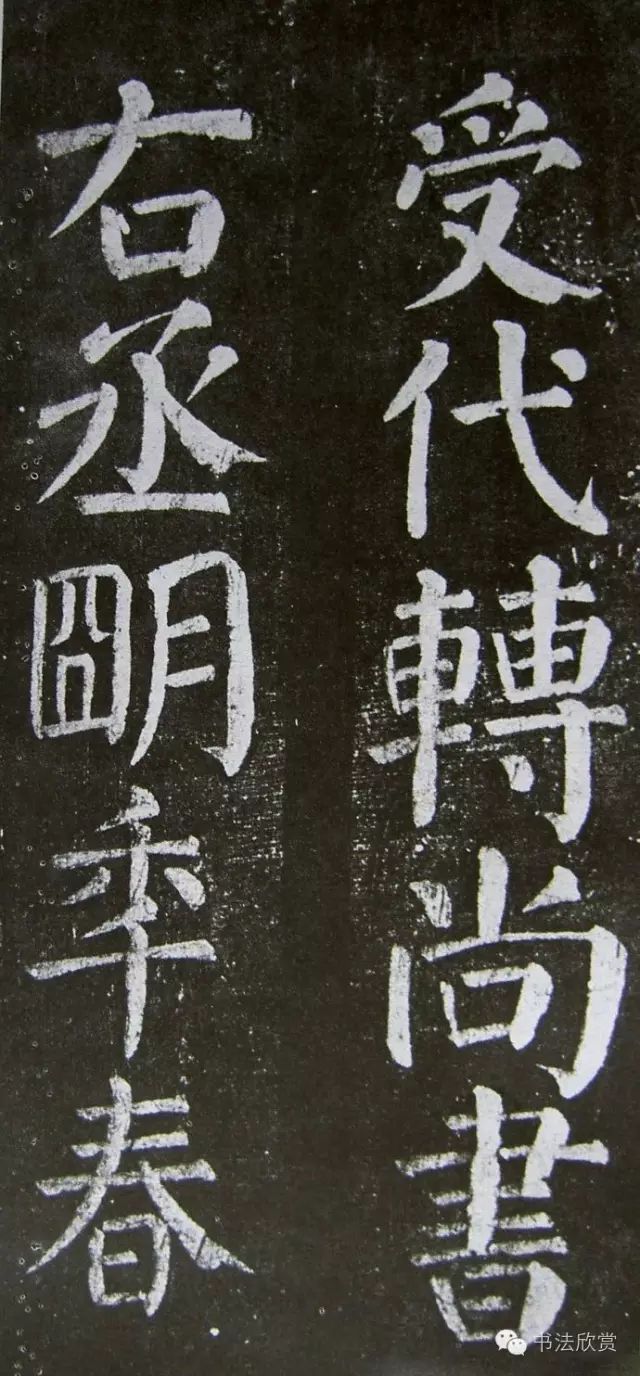 受代轉尚書
右丞朙秊春
书法欣赏